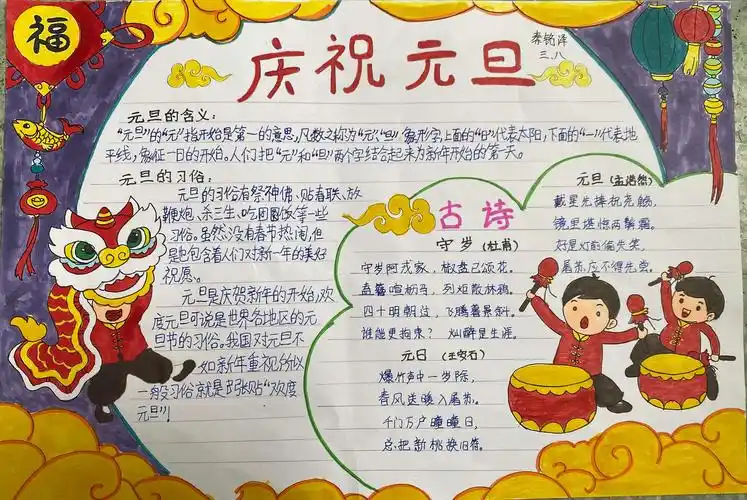 福
庆祝元旦
三.八
元旦的含义：
“元旦”的“元”指开始是第一的意思，凡数之称为“元”，“旦”象形字上面的“日”代表太阳，下面的“一”代表地
平线，象征一日的开始。人们把“元”和“旦”两个字结合起来为新年开始的第一天。
元旦的习俗：
元旦的习俗有祭神佛、贴春联、放
鞭炮、杀三生、吃团圆饭等一些
习俗。虽然没有春节热闹，但
是包含着人们对新一年的美好
祝愿。
元旦是庆贺新年的开始，欢
度元旦可说是世界各地区的元
旦节的习俗。我国对元旦不
如新年重视，所以
一般习俗就是张贴“欢度
元旦”！
古诗
守岁（杜甫）
守岁阿戎家，椒盘已颂花。
盍簪喧枥马，列炬散林鸦。
四十明朝过，飞腾暮景斜。
谁能更拘束？烂醉是生涯。
元日（王安石）
爆竹声中一岁除，
春风送暖入屠苏。
千门万户曈曈日，
总把新桃换旧符。
元旦
戴星先捧祝尧觞，
镜里堪惊两鬓霜。
好是灯前偷失笑，
屠苏应不得先尝。